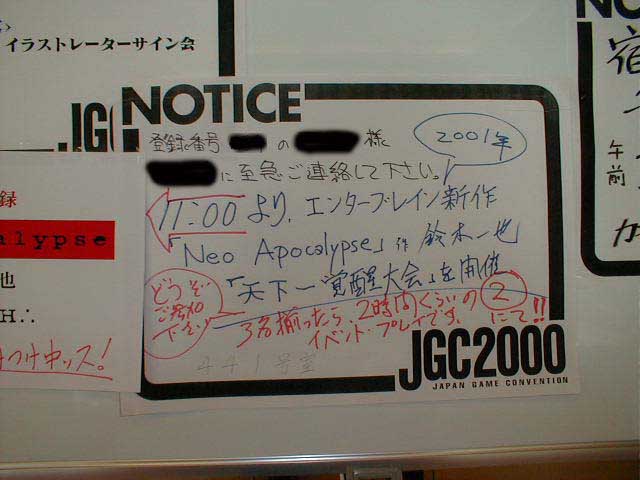 イラストレーターサイン会
JGC
NOTICE
登録番号 の 様
に至急ご連絡して下さい。
2001年
11:00より、エンターブレイン新作
「Neo Apocalypse」作 鈴木一也
「天下一覚醒大会」を開催
どうぞ
ご参加
下さい
3名揃ったら、2時間くらいの
イベント・プレイです。
②にて!!
441号室
JGC2000
JAPAN GAME CONVENTION
録
alypse
也
H∴
ッス!
NOTICE
宿
午前